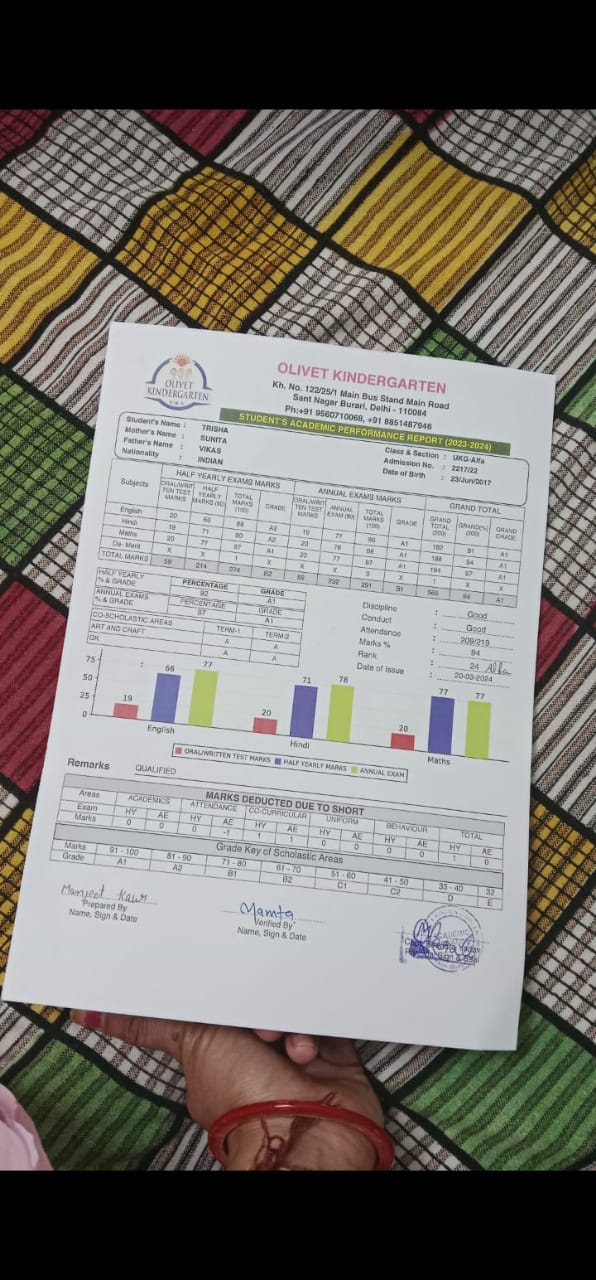 OLIVET
KINDERGARTEN
OLIVET KINDERGARTEN
Kh. No. 122/25/1 Main Bus Stand Main Road
Sant Nagar Burari, Delhi - 110084
Ph:+91 9560710068, +91 8851487946
STUDENT'S ACADEMIC PERFORMANCE REPORT (2023-2024)
Student's Name : TRISHA
Mother's Name : SUNITA
Father's Name : VIKAS
Nationality : INDIAN
Class & Section : UKG-Alfa
Admission No. : 2217/22
Date of Birth : 23/Jun/2017
Subjects HALF YEARLY EXAMS MARKS ANNUAL EXAMS MARKS GRAND TOTAL
ORAL/WRIT TEN TEST MARKS HALF YEARLY MARKS (80) TOTAL MARKS (100) GRADE ORAL/WRIT TEN TEST MARKS ANNUAL EXAM (80) TOTAL MARKS (100) GRADE GRAND TOTAL (200) GRAND(%) (200) GRAND GRADE
English 20 A2 19 77 96 A1 182 91 A1
Hindi 19 71 90 A2 20 78 98 A1 188 94 A1
Maths 20 77 97 A1 20 77 97 A1 194 97 A1
De- Merit X X 1 X X X 0 X 1 X X
TOTAL MARKS 59 214 274 59 232 291 94 A1
HALF YEARLY % & GRADE PERCENTAGE GRADE
92 A1
ANNUAL EXAMS % & GRADE PERCENTAGE GRADE
97 A1
CO-SCHOLASTIC AREAS TERM-1 TERM-2
ART AND CRAFT A A
GK A A
Discipline : Good
Conduct : Good
Attendance : 209/219
Marks % : 94
Rank : 24
Date of Issue : 20-03-2024
75
50
25
0
19 66 77
20 71 78
20 77 77
English Hindi Maths
ORAL/WRITTEN TEST MARKS HALF YEARLY MARKS ANNUAL EXAM
Remarks QUALIFIED
MARKS DEDUCTED DUE TO SHORT
Areas ACADEMICS ATTENDANCE CO-CURRICULAR UNIFORM BEHAVIOUR TOTAL
Exam HY AE HY AE HY AE HY AE HY AE HY AE
Marks 0 0 0 -1 1 1 0 0 0 0 1 0
Grade Key of Scholastic Areas
Marks 91 - 100 81 - 90 71 - 80 61 - 70 51 - 60 41 - 50 33 - 40 32
Grade A1 A2 B1 B2 C1 C2 D E
Manjeet Kaur
Prepared By
Name, Sign & Date
Mamta
Verified By
Name, Sign & Date
Sign & Seal